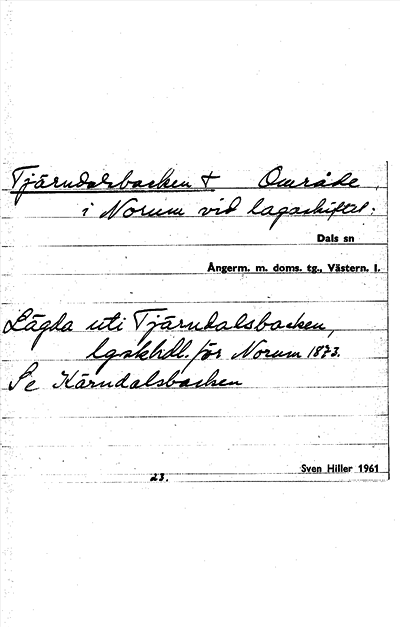 Tjärndalsbacken † Område,
i Norum vid lagaskiftet:
Dals sn
Ångerm. m. doms. tg., Västern. l.
Lägda uti Tjärndalsbacken,
lgaskhdl. för Norum 1873.
Se Kärndalsbacken
Sven Hiller 1961
23.